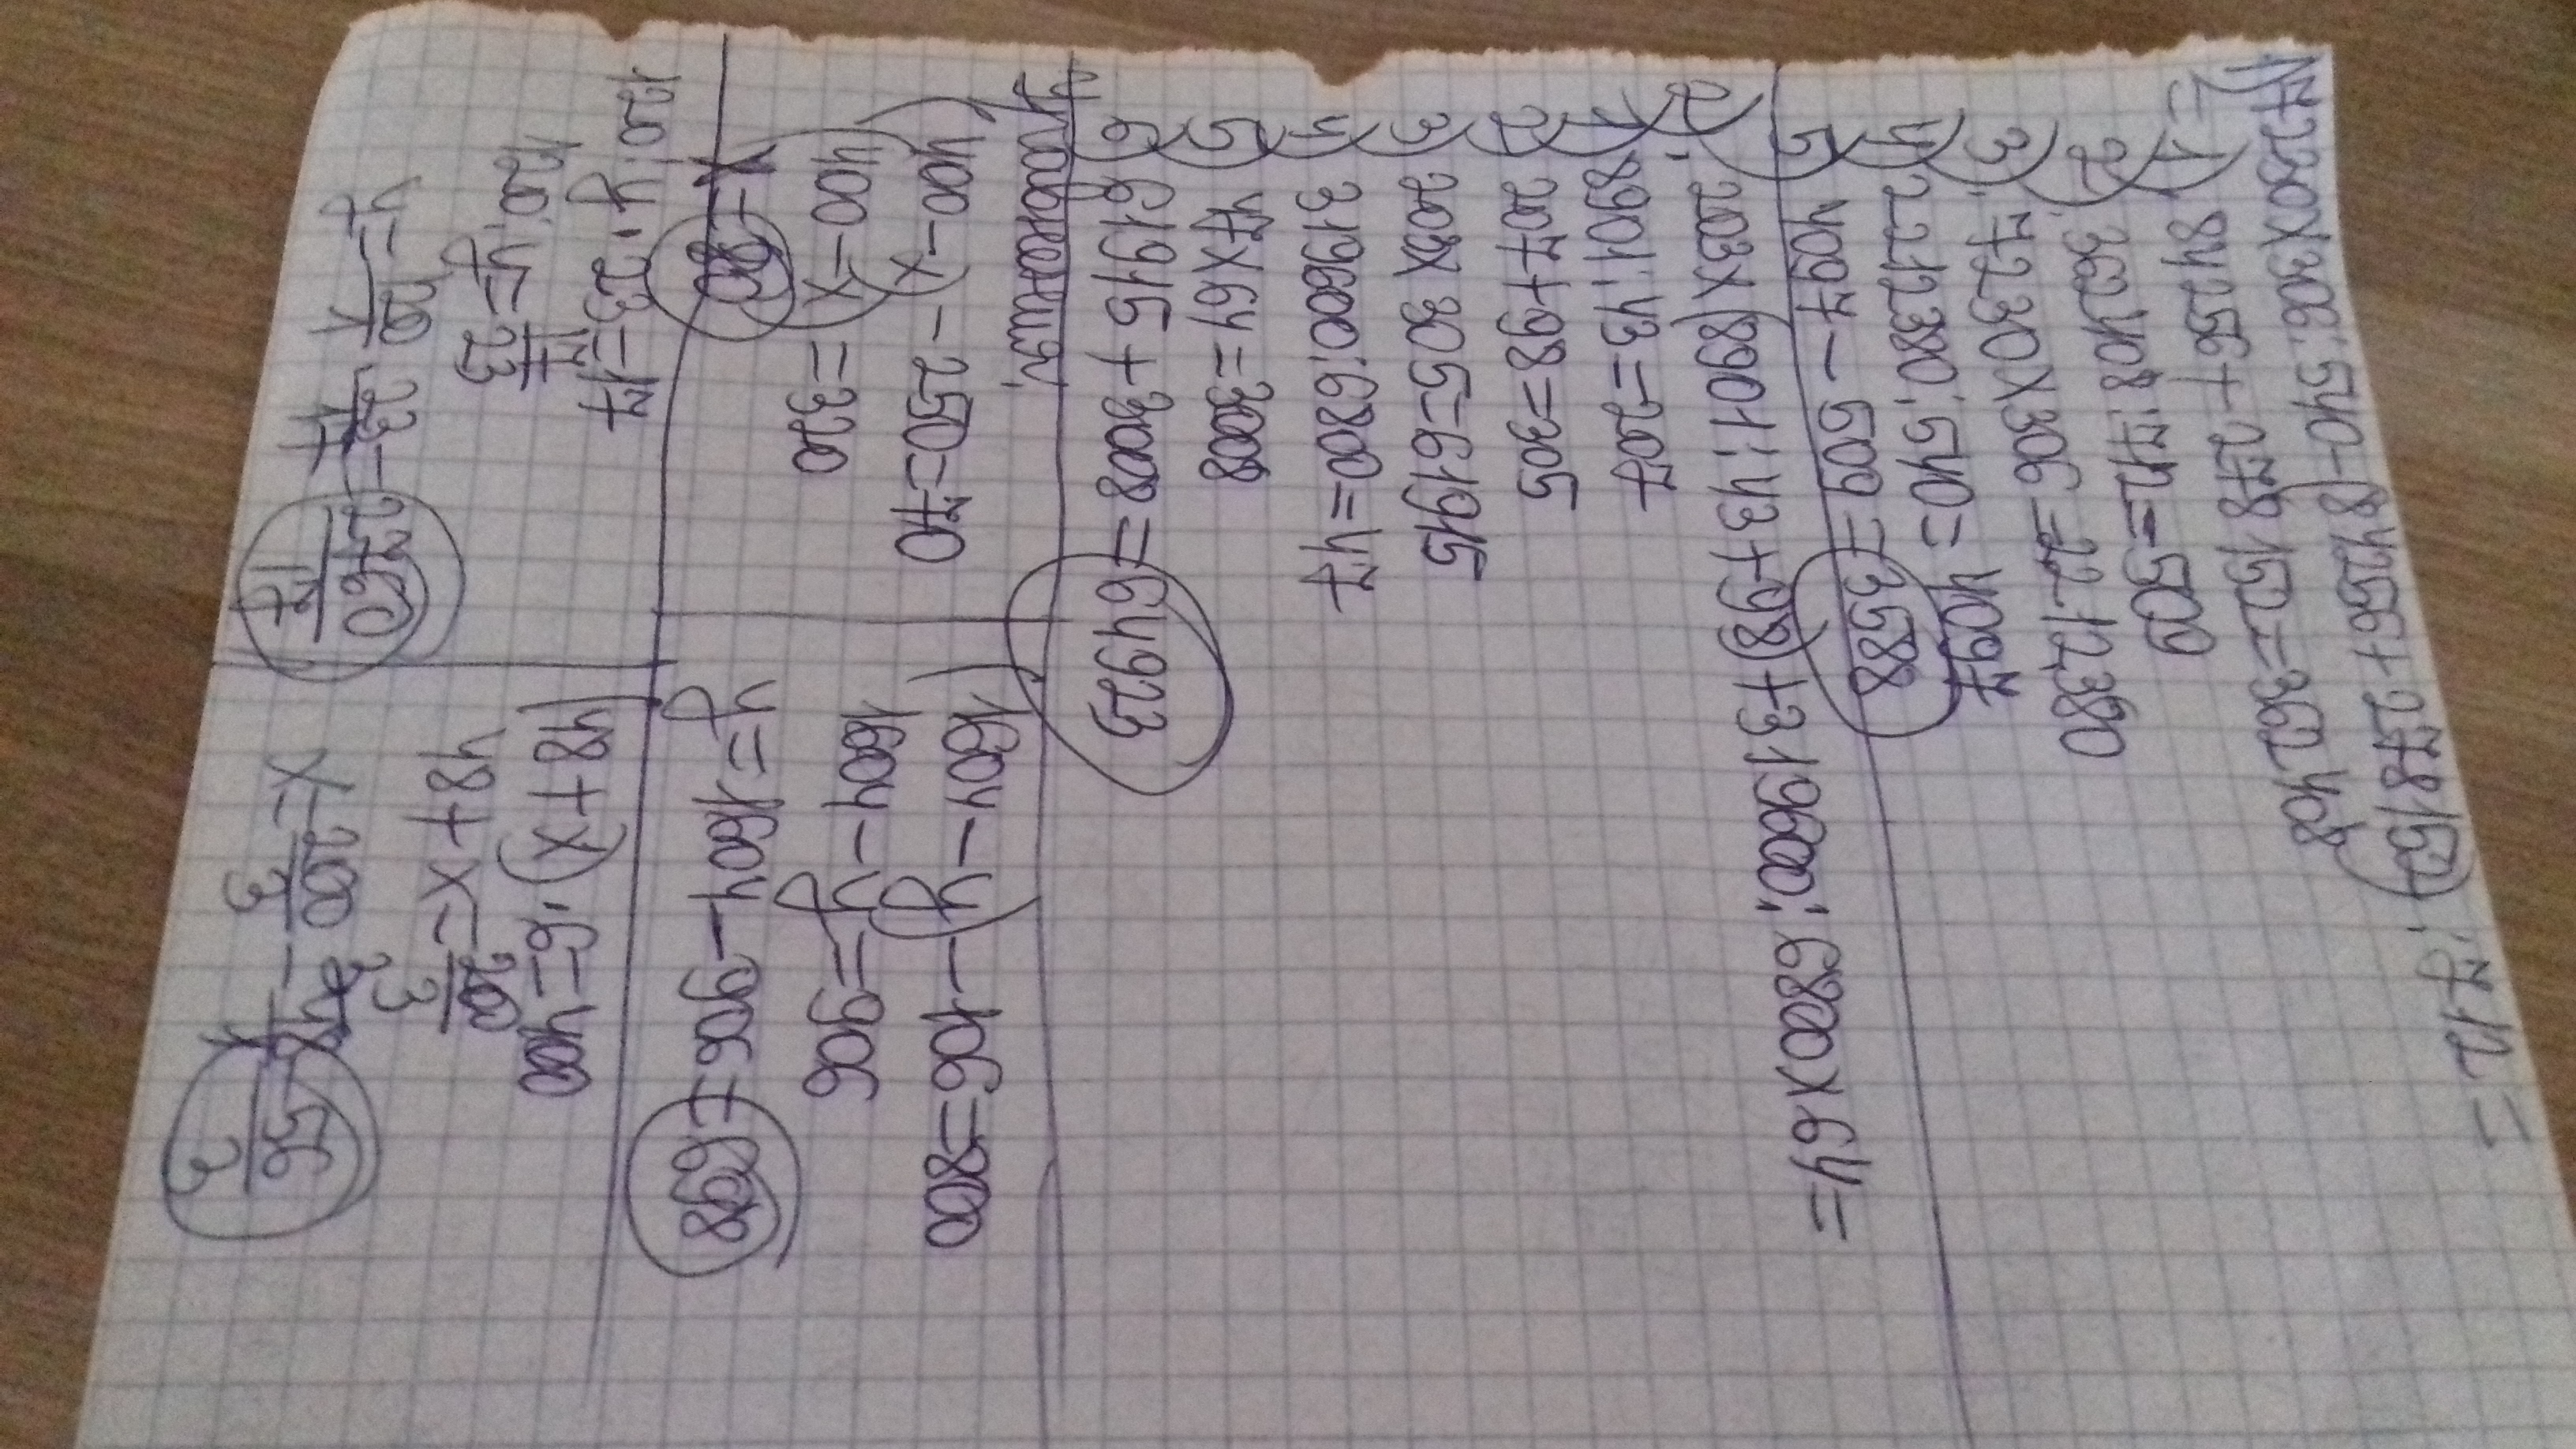 1) 7230x306:540-(84256+278152):712=
1) 84256+278152=362408
2) 362408:712=509
3) 7230x306=2212380
4) 2212380:540=4097
5) 4097-509=3588
2) 203x(8901:43+98)+319600:6800x64=
1) 8901:43=207
2) 207+98=305
3) 203x305=61915
4) 319600:6800=47
5) 47x64=3008
6) 61915+3008=64923
Уравнения:
(400-x)-250=70
(400-x)=320
x=80
(1604-y)-106=800
1604-y=906
y=1604-906=698
120:y·23=17
120:y=17/23
y=120/1·23/17=2760/17
(48+x)·6=400
48+x=200/3
x=200/3-48=56/3